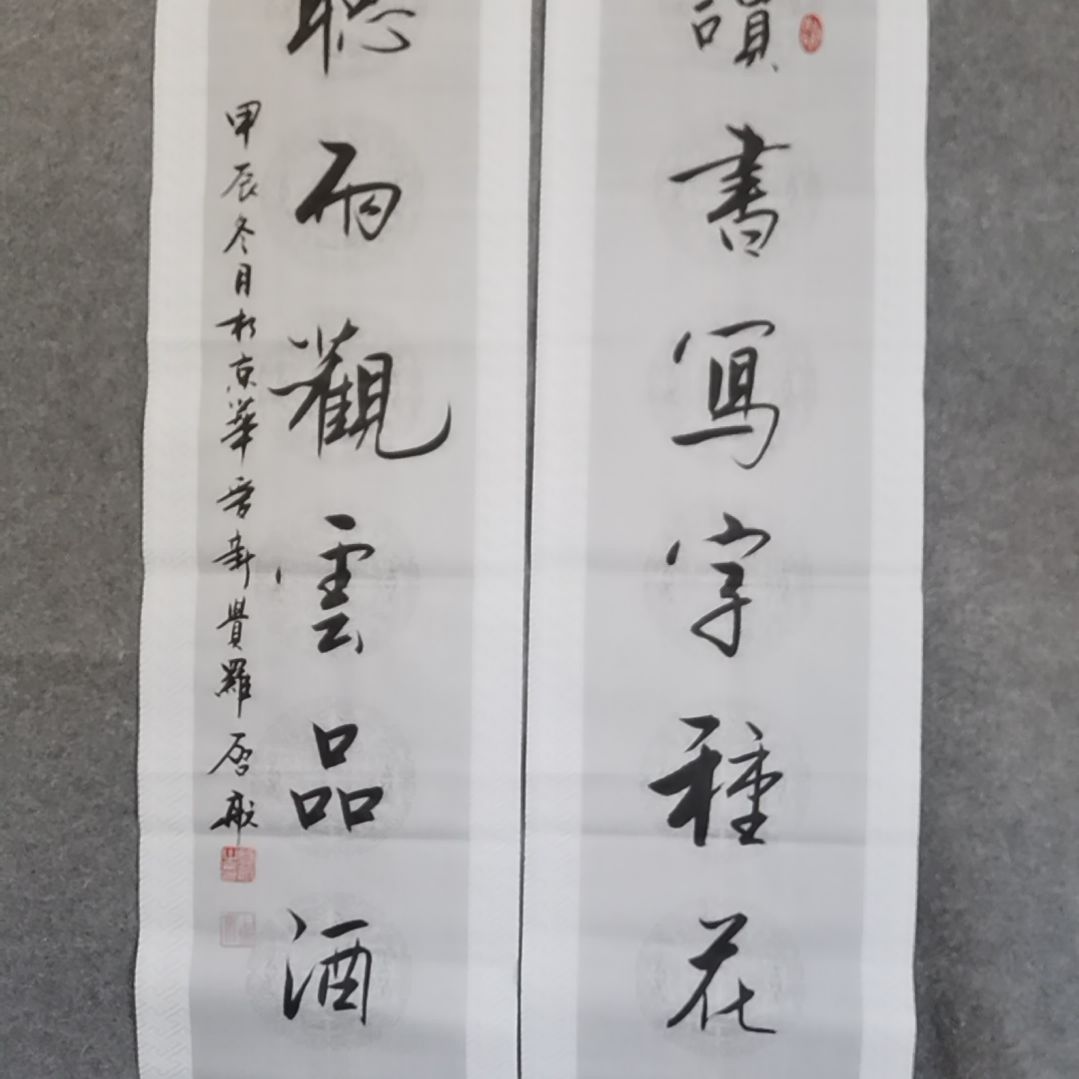 讀書寫字種花
聽雨觀雲品酒
甲辰冬月於京華愛新覺羅啓